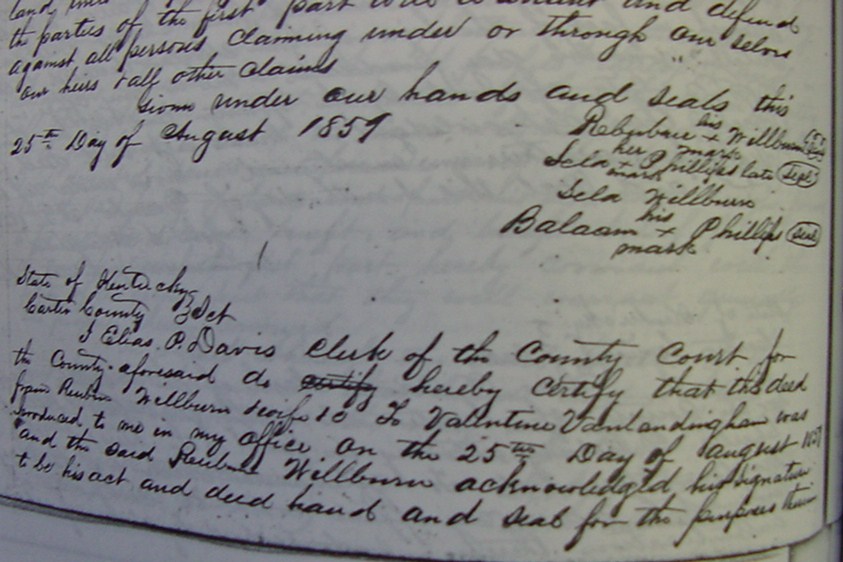 the parties of the first part will warrant and defend
against all persons claiming under or through our selvs
our heirs & all other claims
Given under our hands and seals this
25th Day of August 1857
his
Rebuben + Willburn
her mark
Sela + Phillips late Seal
mark
Sela Willburn
his
Balaam + Phillips Seal
mark
State of Kentucky
Carter County Sct
I Elias P. Davis Clerk of the County Court for
the County aforesaid do certify hereby Certify that this deed
from Reuben Willburn To Valentine Vanlandingham was
produced, to me in my office on the 25th Day of august 1857
and the said Reuben Willburn acknowledged his signature
to be his act and deed hand and seal for the purposes